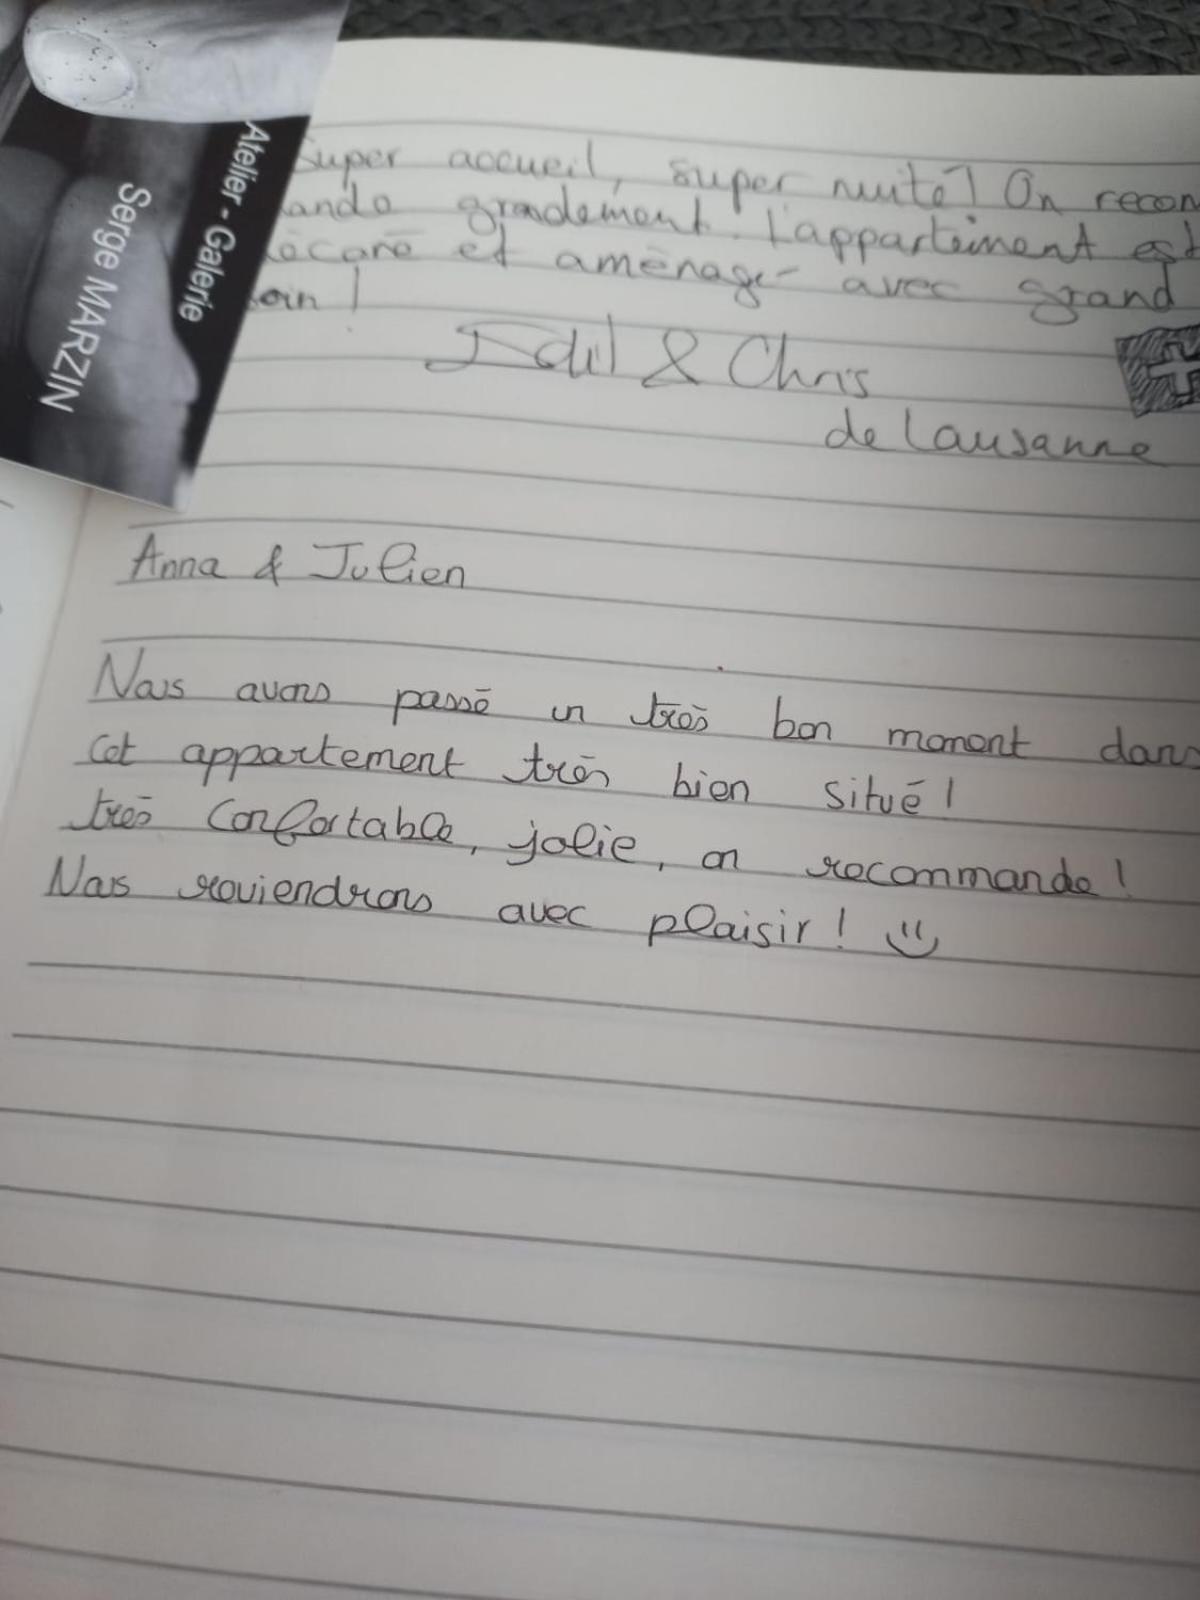 Atelier - Galerie
Serge MARZIN
Super accueil, super nuité! On recom
mande grandement. L'appartement est
décoré et aménagé avec grand
soin !
& Chris
de Lausanne
Anna & Julien
Nous avons passé un très bon moment dans
cet appartement très bien situé !
très confortable, jolie, on recommande !
Nous reviendrons avec plaisir !